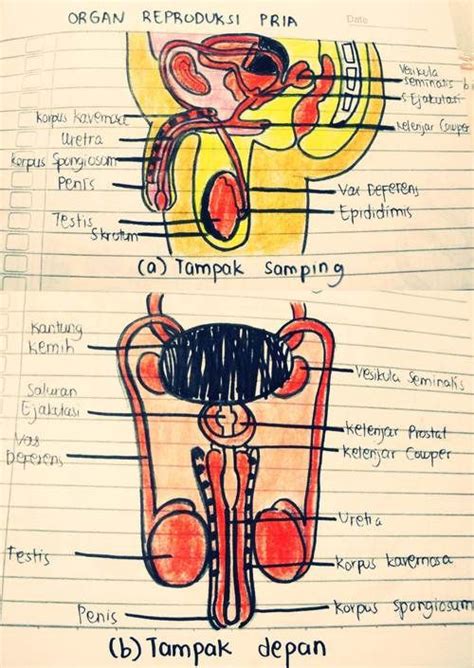 ORGAN REPRODUKSI PRIA
Date
Vesikula
seminalis
Ejakulasi
Kelenjar Cowper
Korpus kavernosa
Uretra
Korpus Spongiosum
Penis
Testis
Skrotum
Vas DEFERENS
Epididimis
(a) Tampak samping
Kantung
Kemih
Saluran
Ejakutasi
Vas
DEFERENS
Testis
Penis
Vesikula Seminalis
Kelenjar Prostat
Kelenjar Cowper
Uretra
Korpus kavernosa
Korpus spongiosum
(b) Tampak depan